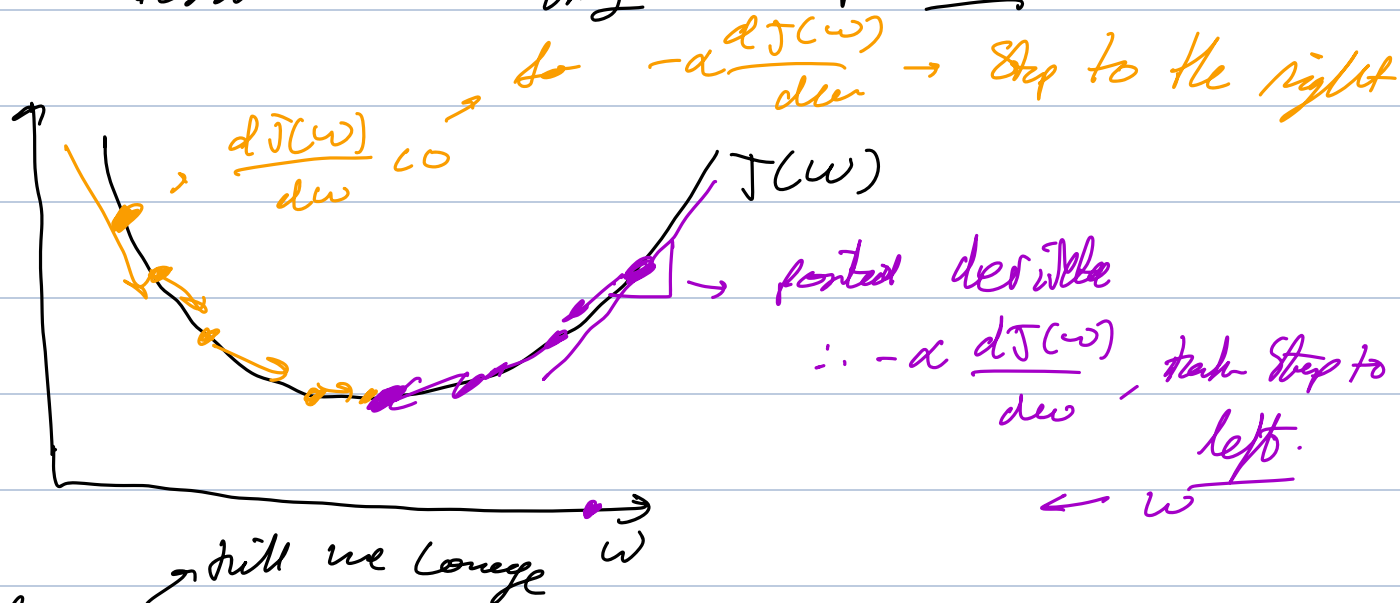 so -α dJ(w)/dw → Step to the right
dJ(w)/dw < 0
J(w)
→ positive derivative
∴ -α dJ(w)/dw, take step to
left.
← w
w
till we converge